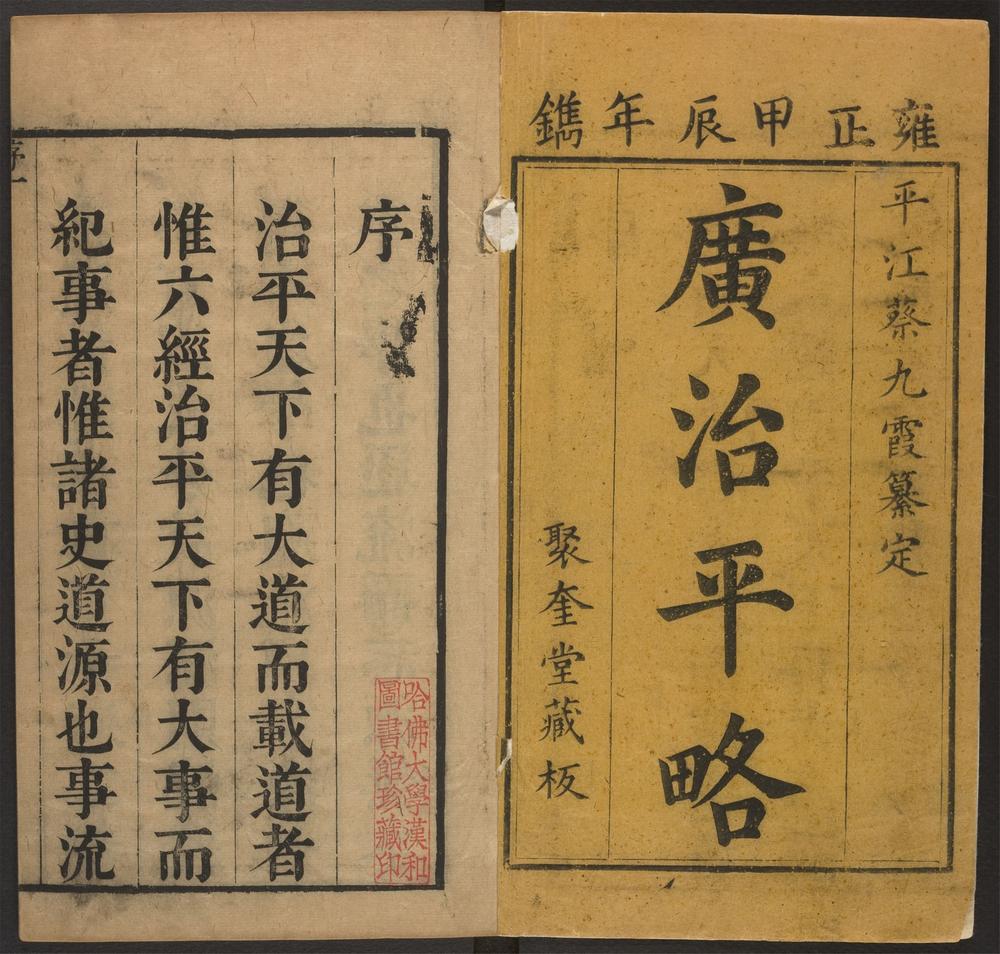 雍正甲辰年鐫
平江蔡九霞纂定
廣治平略
聚奎堂藏板
序
治平天下有大道而載道者
惟六經治平天下有大事而
紀事者惟諸史道源也事流
哈佛大學漢和
圖書館珍藏印
序一